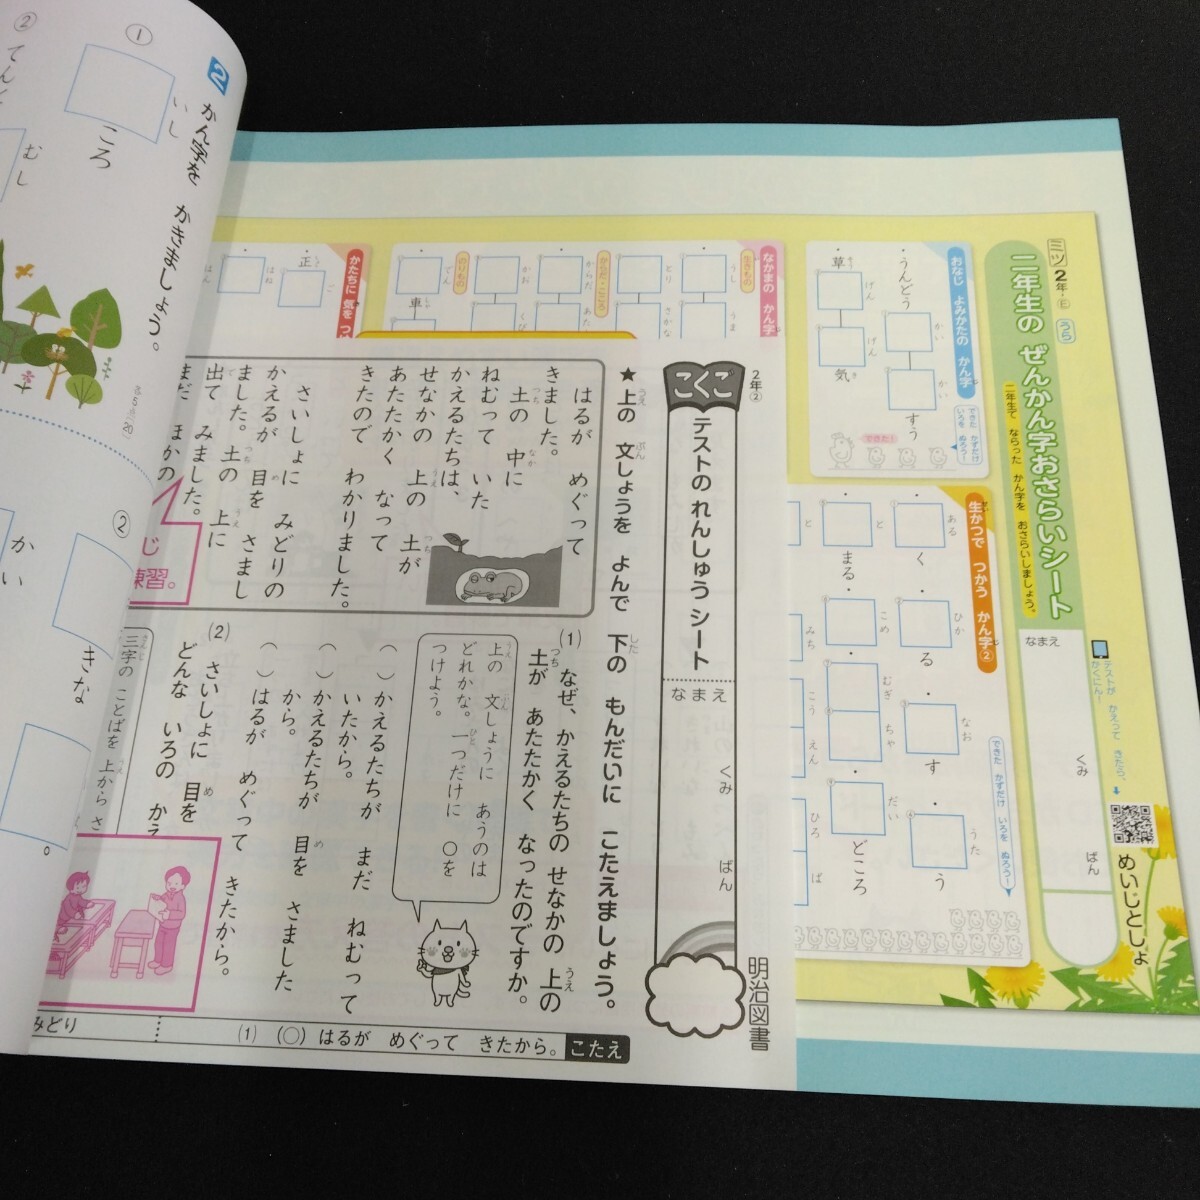 2
かん字を かきましょう。
①
いし
ころ
②
てん
むし
各5点(20)
②
かい
きな
ミツ2年・E
うら
二年生の ぜんかん字おさらいシート
二年生で ならった かん字を おさらいしましょう。
なまえ
くみ
ばん
テストが かえって きたら、
かくにん!
めいじとしょ
おなじ よみかたの かん字
うんどう
かい
かい
すう
草
げん
げん
気
できた かずだけ
いろを ぬろう!
できた!
なかまの かん字
生きもの
うし
うま
とり
さかな
からだ・こころ
からだ
あた
かお
くび
のりもの
でん
車
かたちに 気を つ
正
ご
はね
はん
生かつで つかう かん字②
ある
く
ひか
る
なお
す
うた
う
と
まる
こめ
むぎ
ちゃ
だい
どころ
と
みち
こう
えん
ひろ
ば
できた かずだけ いろを ぬろう!
2年②
こくご
テストの れんしゅう シート
なまえ
くみ
ばん
明治図書
★上の 文しょうを よんで 下の もんだいに こたえましょう。
うえ
ぶん
した
はるが めぐって
きました。
土の 中に
つち
なか
ねむって いた
かえるたちは、
せなかの 上の 土が
うえ
つち
あたたかく なって
きたので わかりました。
さいしょに みどりの
かえるが 目を さまし
め
ました。土の 上に
つち
うえ
出て みました。
で
まだ ほかの
じ
練習。
(1) なぜ、かえるたちの せなかの 上の
うえ
土が あたたかく なったのですか。
つち
上の 文しょうに あうのは
うえ
ぶん
どれかな。一つだけに ○を
ひと
つけよう。
( )かえるたちが まだ ねむって
いたから。
( )かえるたちが 目を さました
め
から。
( )はるが めぐって きたから。
(2) さいしょに 目を
め
どんな いろの かえ
三字の ことばを 上から さ
さんじ
うえ
こたえ
(1) (○) はるが めぐって きたから。
みどり